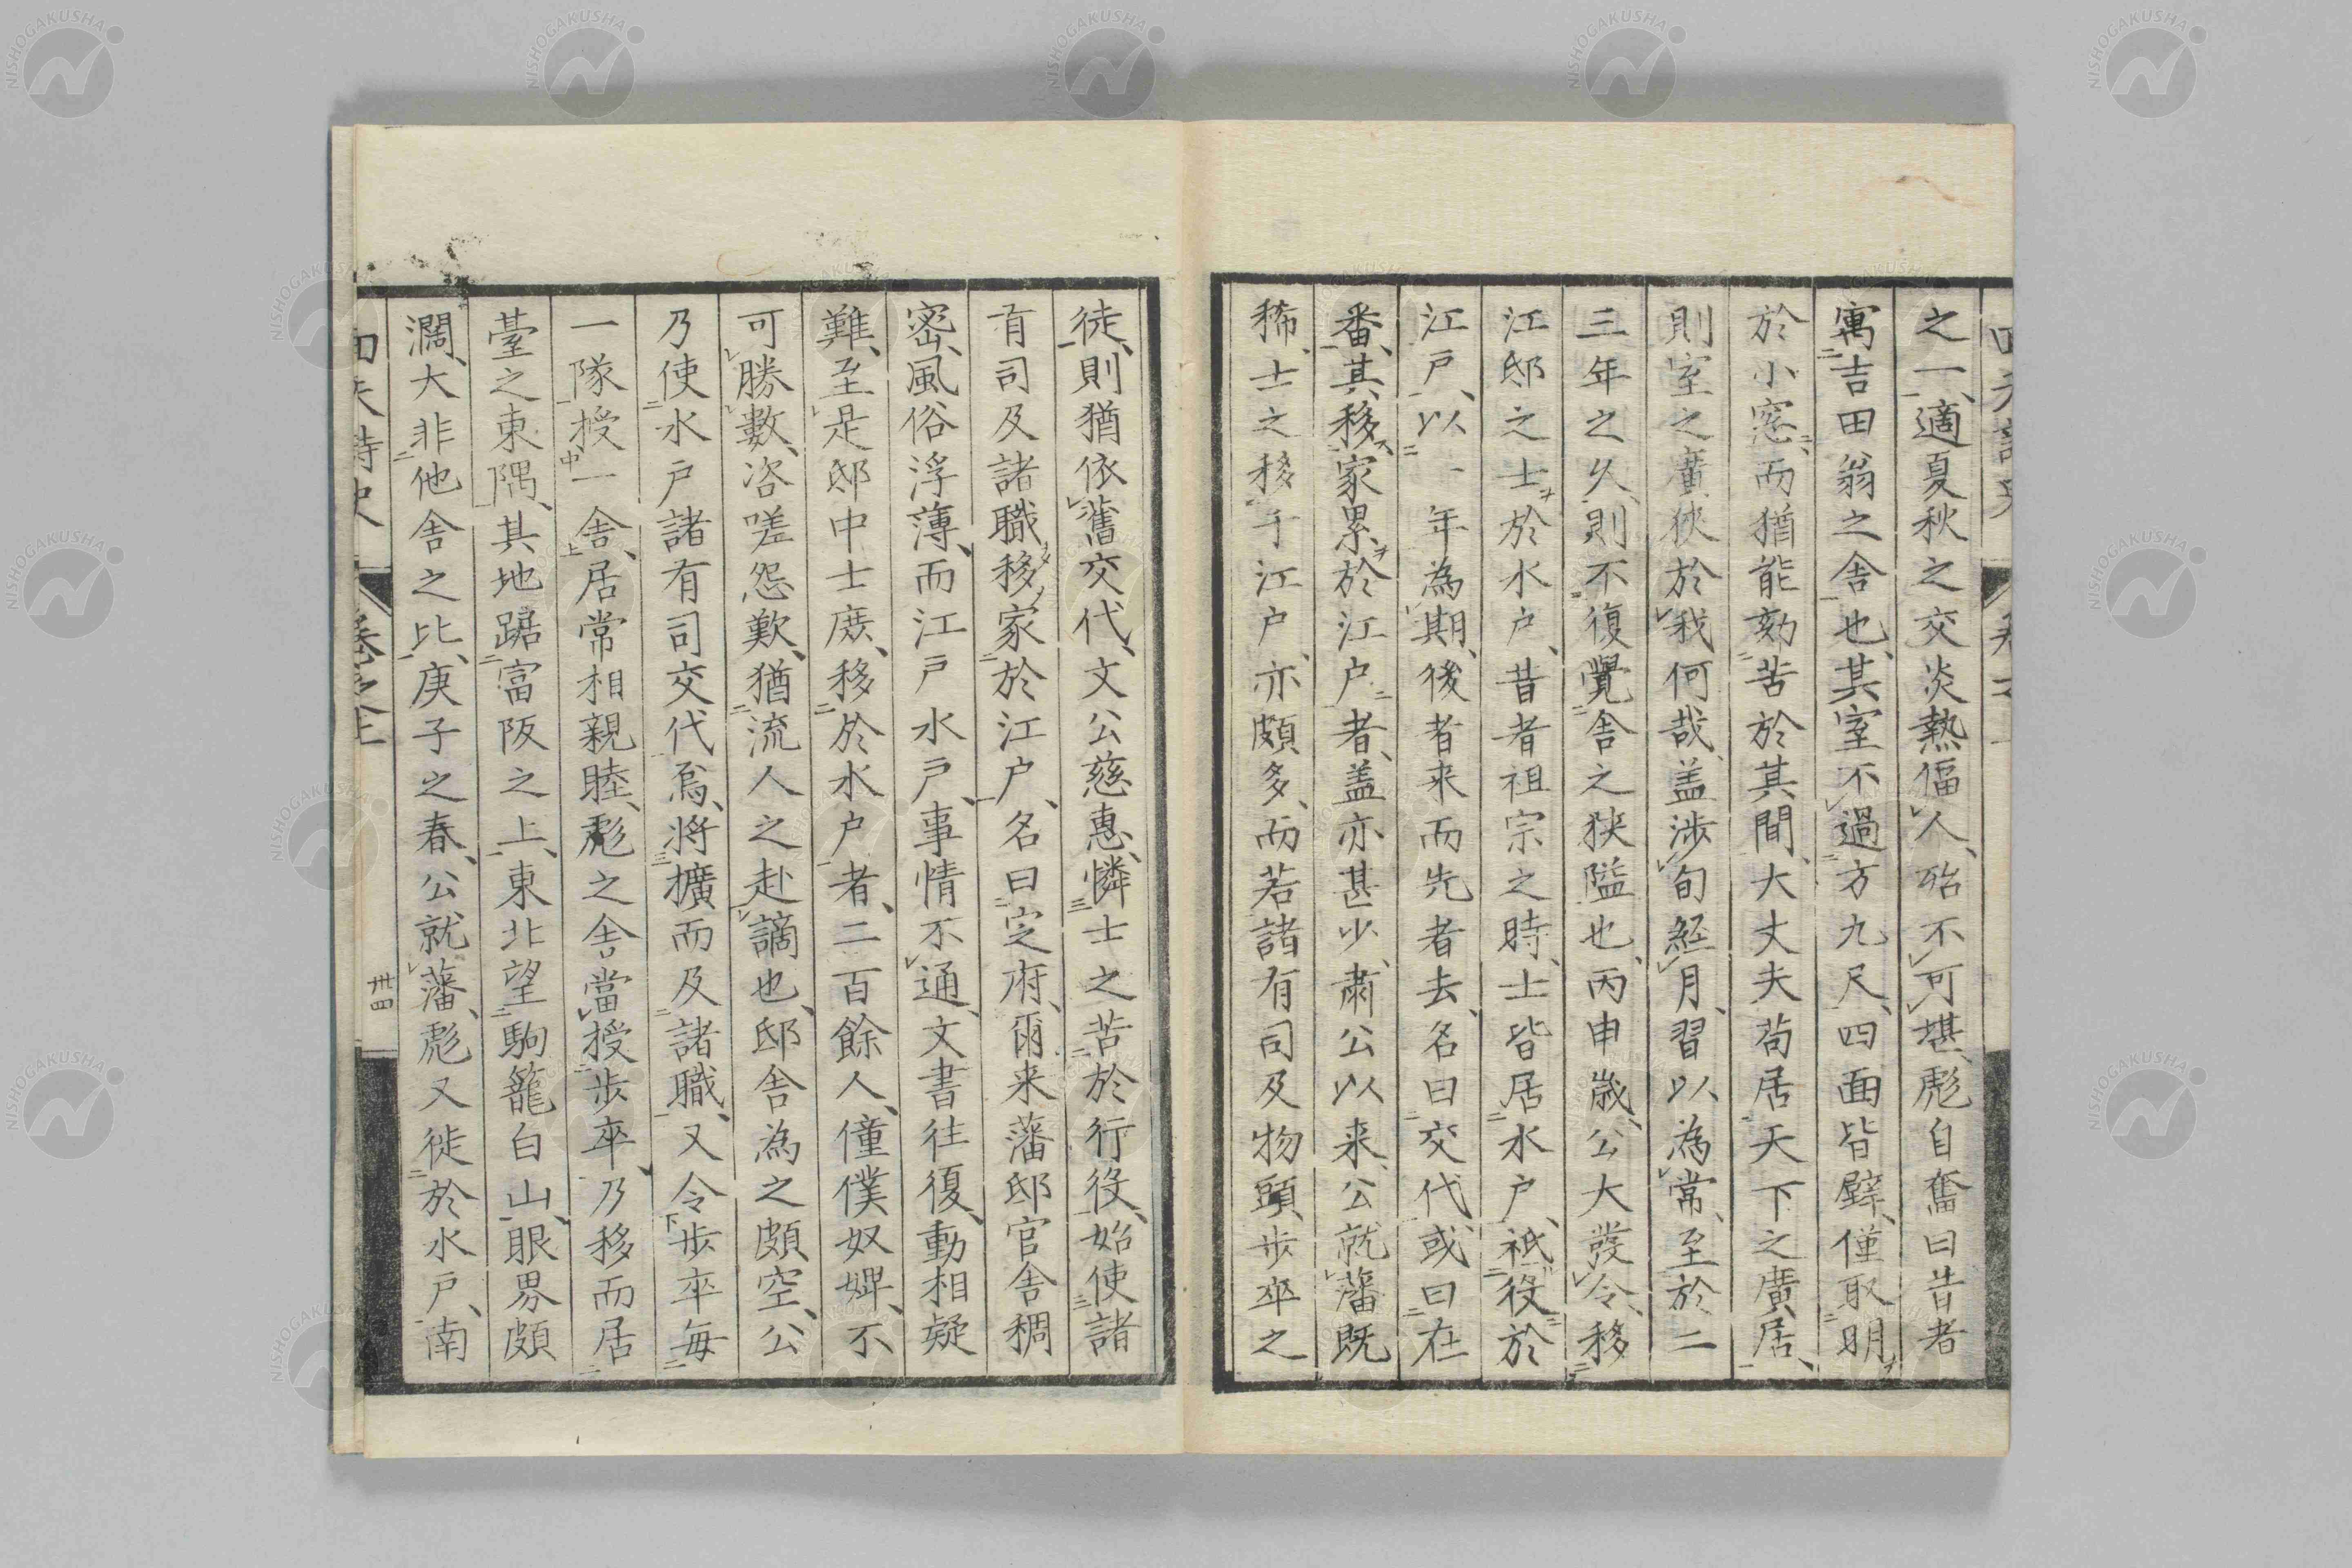 之一、適夏秋之交炎熱偪人、殆不可堪、彪自奮曰昔者
寓吉田翁之舎也、其室不過方九尺、四面皆壁、僅取明
於小窓、而猶能勉苦於其間、大丈夫苟居天下之廣居、
則室之廣狹於我何哉、盖渉旬經月、習以為常、至於二
三年之久、則不復覺舎之狹隘也、丙申歳、公大發令、移
江邸之士於水户、昔者祖宗之時、士皆居水户、祗役於
江戸、以一年為期、後者来而先者去、名曰交代、或曰在
番、其移家累於江户者、盖亦甚少、肅公以来、公就藩既
稀、士之移于江户、亦頗多、而若諸有司及物頭、歩卒之
徒、則猶依舊交代、文公慈惠、憐士之苦於行役、始使諸
有司及諸職移家於江户、名曰定府、爾来藩邸官舎稠
密、風俗浮薄、而江戸水戸、事情不通、文書往復、動相疑
難、至是邸中士庶、移於水户者、二百餘人、僮僕奴婢、不
可勝數、咨嗟怨歎、猶流人之赴謫也、邸舎為之頗空、公
乃使水戸諸有司交代焉、將擴而及諸職、又令歩卒毎
一隊授一舎、居常相親睦、彪之舎當授歩卒、乃移而居
臺之東隅、其地踞富阪之上、東北望駒籠白山、眼界頗
濶、大非他舎之比、庚子之春、公就藩、彪又徙於水戸、南
回天詩史 卷之上
卅四